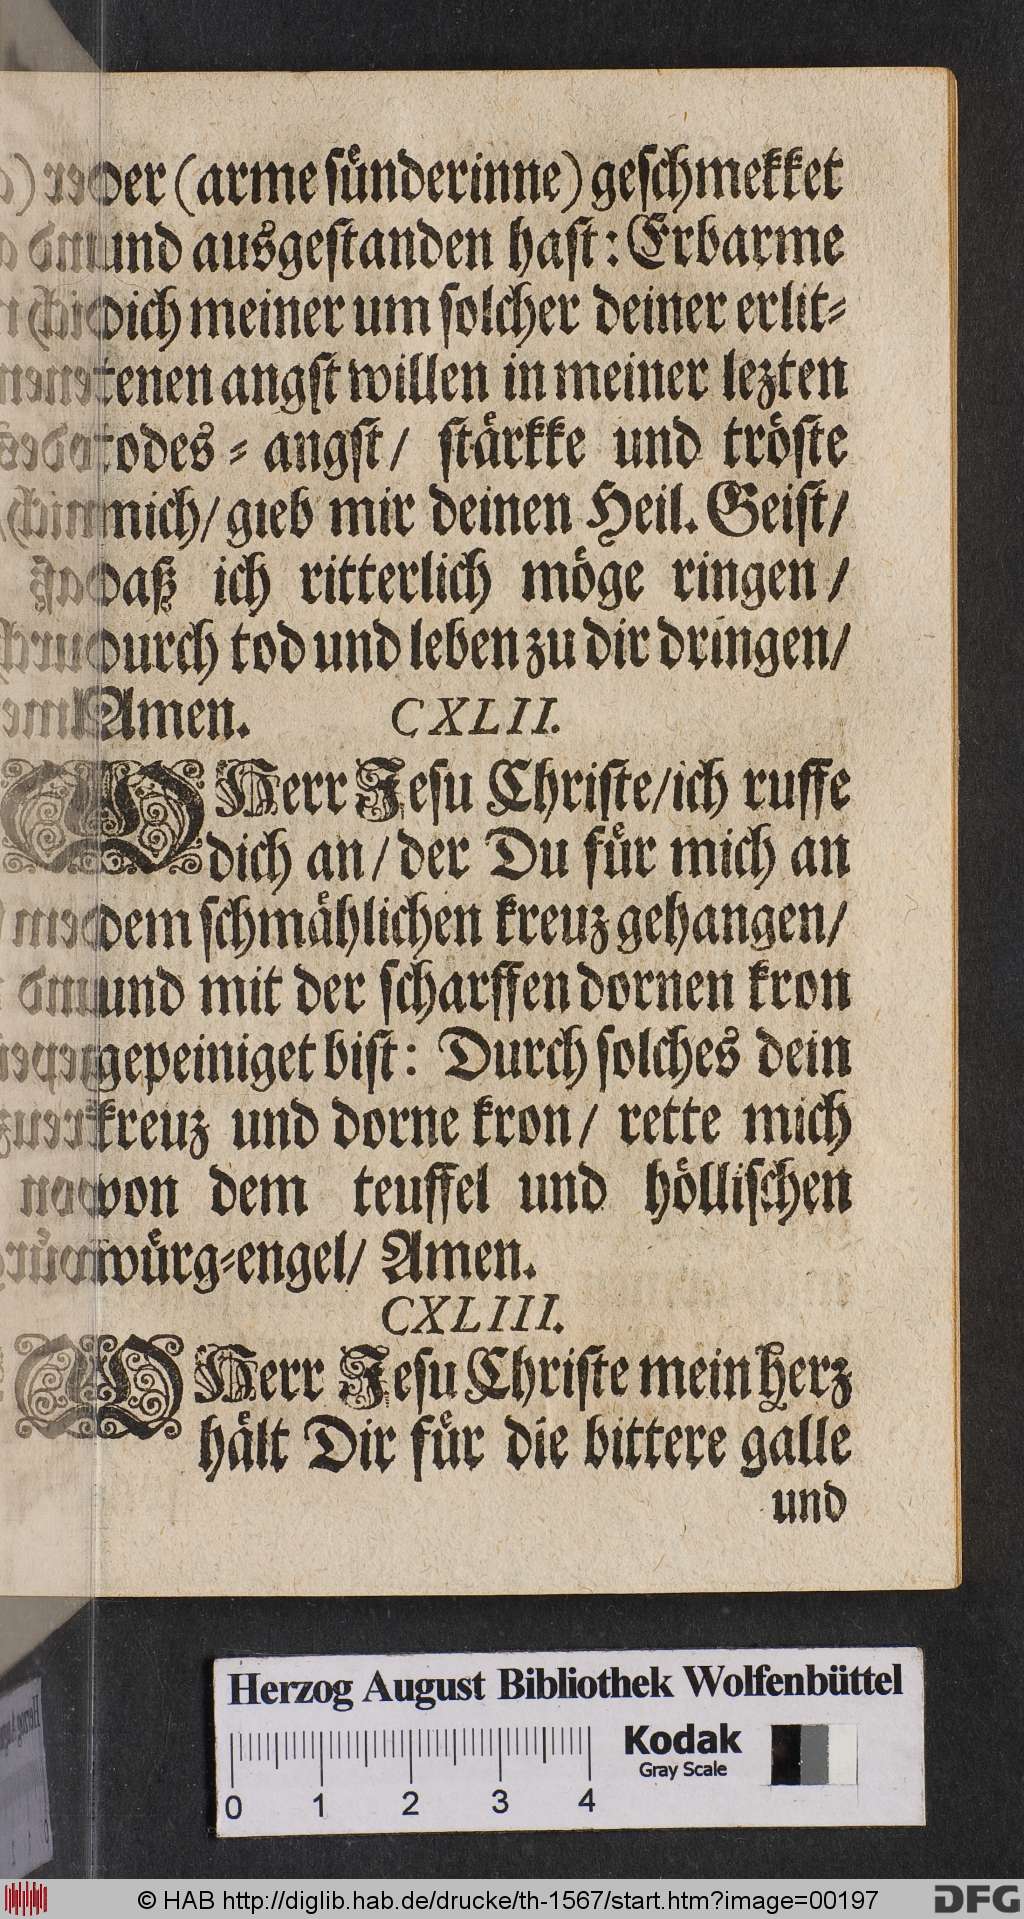 der (arme sünderinne) geschmekket
und ausgestanden hast: Erbarme
dich meiner um solcher deiner erlit-
tenen angst willen in meiner lezten
todes-angst/ stärkke und tröste
mich/ gieb mir deinen Heil. Geist/
daß ich ritterlich möge ringen/
durch tod und leben zu dir dringen/
Amen. CXLII.
O Herr Jesu Christe/ich ruffe
dich an/ der Du für mich an
dem schmählichen kreuz gehangen/
und mit der scharffen dornen kron
gepeiniget bist: Durch solches dein
kreuz und dorne kron/ rette mich
von dem teuffel und höllischen
würg-engel/ Amen.
CXLIII.
O Herr Jesu Christe mein herz
hält Dir für die bittere galle
und
Herzog August Bibliothek Wolfenbüttel
Kodak
Gray Scale
0 1 2 3 4
© HAB http://diglib.hab.de/drucke/th-1567/start.htm?image=00197
DFG